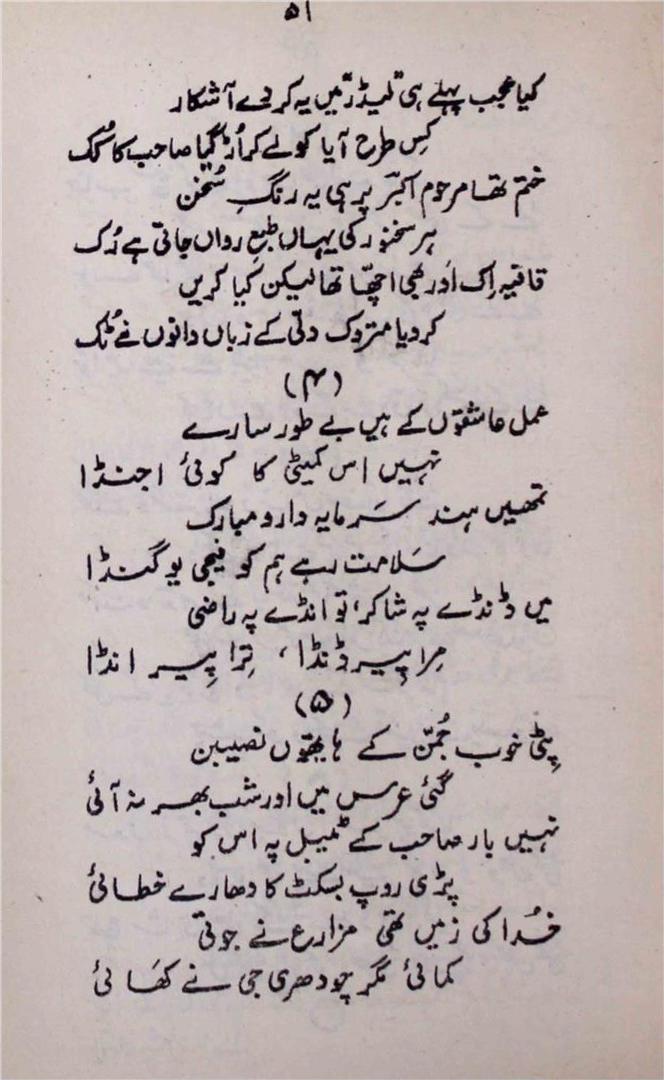 ۵۱
کیا عجب پہلے ہی لیڈر میں یہ کر دے آشکار
کِس طرح آیا کولے کر اُڑ گیا صاحب کا کُک
ختم تھا مرحوم اکبرؔ پر ہی یہ رنگِ سُخن
ہر سخنور کی یہاں طبعِ رواں جاتی ہے رُک
قافیہ اِک اَور بھی اچھّا تھا لیکن کیا کریں
کر دیا متروک دلّی کے زباں دانوں نے ٹُک
(۴)
عمل عاشقوں کے ہیں بے طور سارے
نہیں اس کمیٹی کا کوئی اجنڈا
تمھیں ہند سَرمایہ دارو مبارک
سَلامت رہے ہم کو فیجی یوگنڈا
میں ڈنڈے پہ شاکر، تو انڈے پہ راضی
مِرا پِیر ڈنڈا، تِرا پِیر انڈا
(۵)
پِٹی خوب جُمّن کے ہاتھوں نصیبن
گئی عرس میں اور شب بھر نہ آئی
نہیں بار صاحب کے ٹیبل پہ اس کو
پڑی روپ بسکٹ کا دھارے خطائی
خُدا کی زمیں تھی مزارع نے جوتی
کمائی مگر چودھری جی نے کھَائی